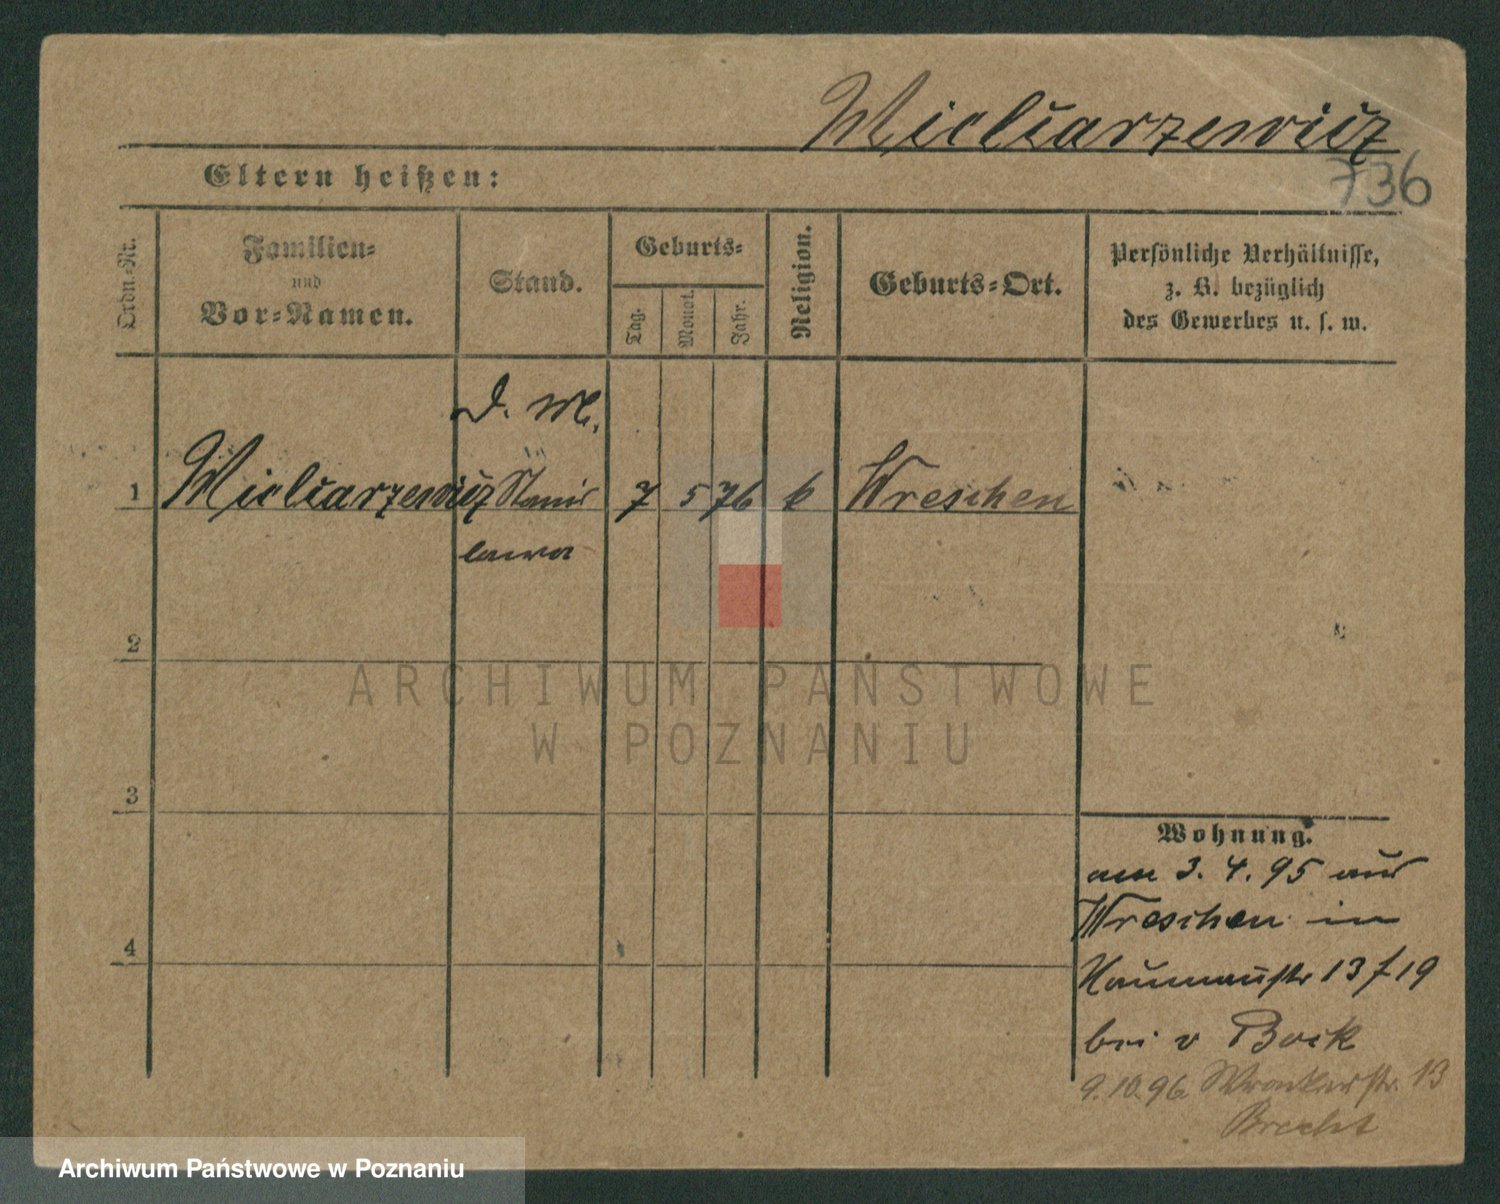 Mielcarzewicz
736
Eltern heißen:
Ordn.-Nr.
Familien-
und
Vor-Namen.
Stand.
Geburts-
Tag.
Monat.
Jahr.
Religion.
Geburts-Ort.
Persönliche Verhältnisse,
z. B. bezüglich
des Gewerbes u. s. w.
D. M.
1 Mielcarzewicz Stanis 7 5 76 k Wreschen
lawa
2
3
4
Wohnung.
am 3.4.95 aus
Wreschen in
Naumannstr 13 f 19
bei v Bock
9.10.96 Wronkerstr. 13
Brecht
ARCHIWUM PAŃSTWOWE
W POZNANIU
Archiwum Państwowe w Poznaniu